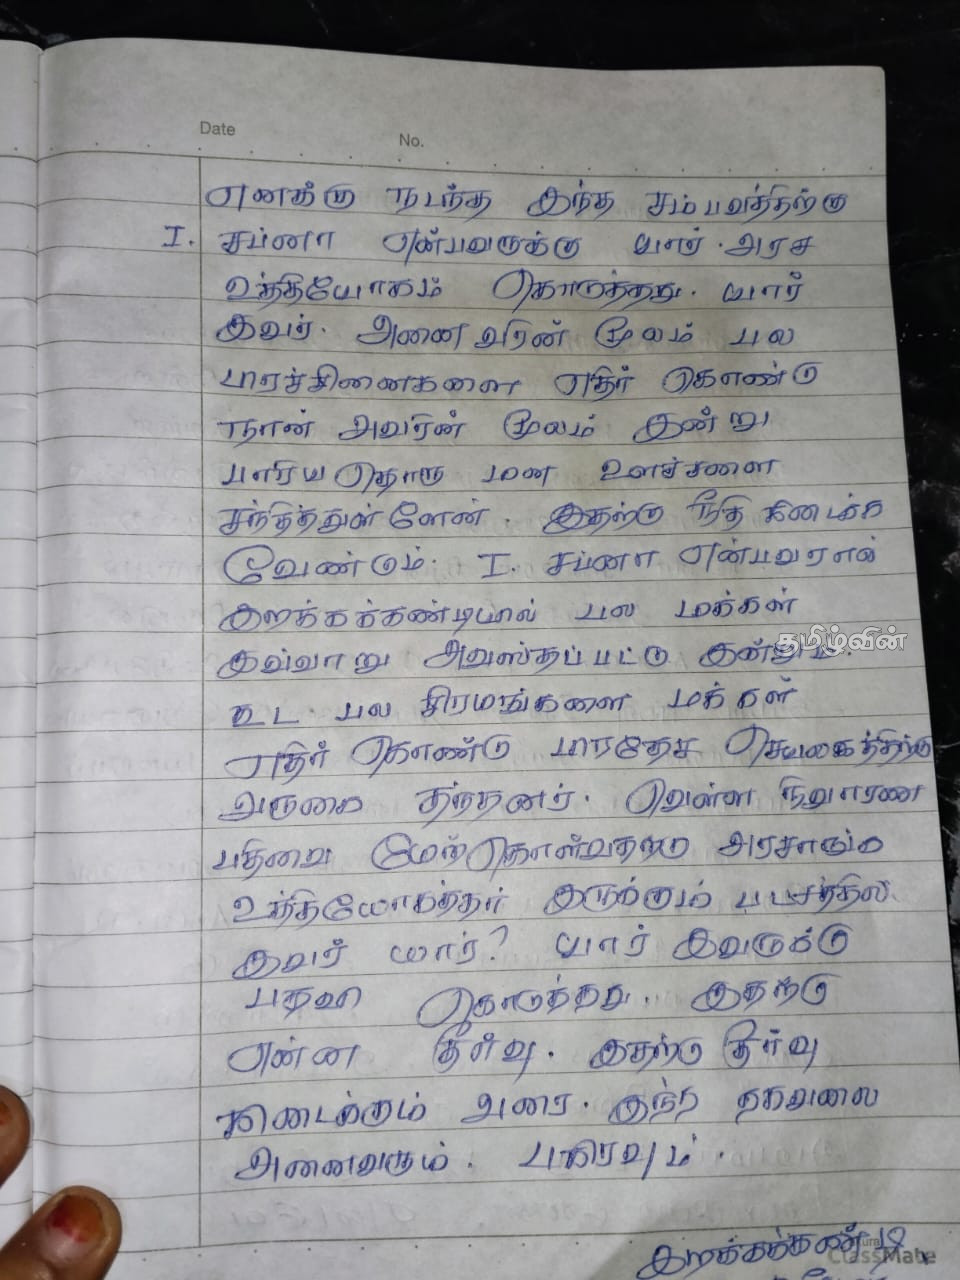 Date No.
எனக்கு நடந்த இந்த சம்பவத்திற்கு
I. சப்னா என்பவருக்கு யார். அரச
உத்தியோகம் கொடுத்தது. யார்
இவர். அனைவரின் மூலம் பல
பாரச்சினைகளை எதிர் கொண்டு
நான் அவரின் மூலம் இன்று
பாரிய தொரு மன உளச்சளை
சந்தித்துள்ளேன். இதற்கு நீதி கிடைக்க
வேண்டும். I. சப்னா என்பவரால்
இறக்கக்கண்டியில் பல மக்கள்
இவ்வாறு அவஸ்தப்பட்டு இன்றும்.
கூட பல சிரமங்களை மக்கள்
எதிர் கொண்டு பாரதேச செயலகத்திற்கு
வருகை தந்தனர். வெள்ள நிவாரண
பதிவை மேற்கொள்வதற்கு அரசாங்க
உத்தியோகத்தர் இருக்கும் பட்சத்தில்
இவர் யார்? யார் இவருக்கு
பதவி கொடுத்தது. இதற்கு
என்ன தீர்வு. இதற்கு தீர்வு
கிடைக்கும் வரை. இந்த தகவலை
அனைவரும். பகிரவும்.
இறக்கக்கண்டி
தமிழ்வின்
ClassMate